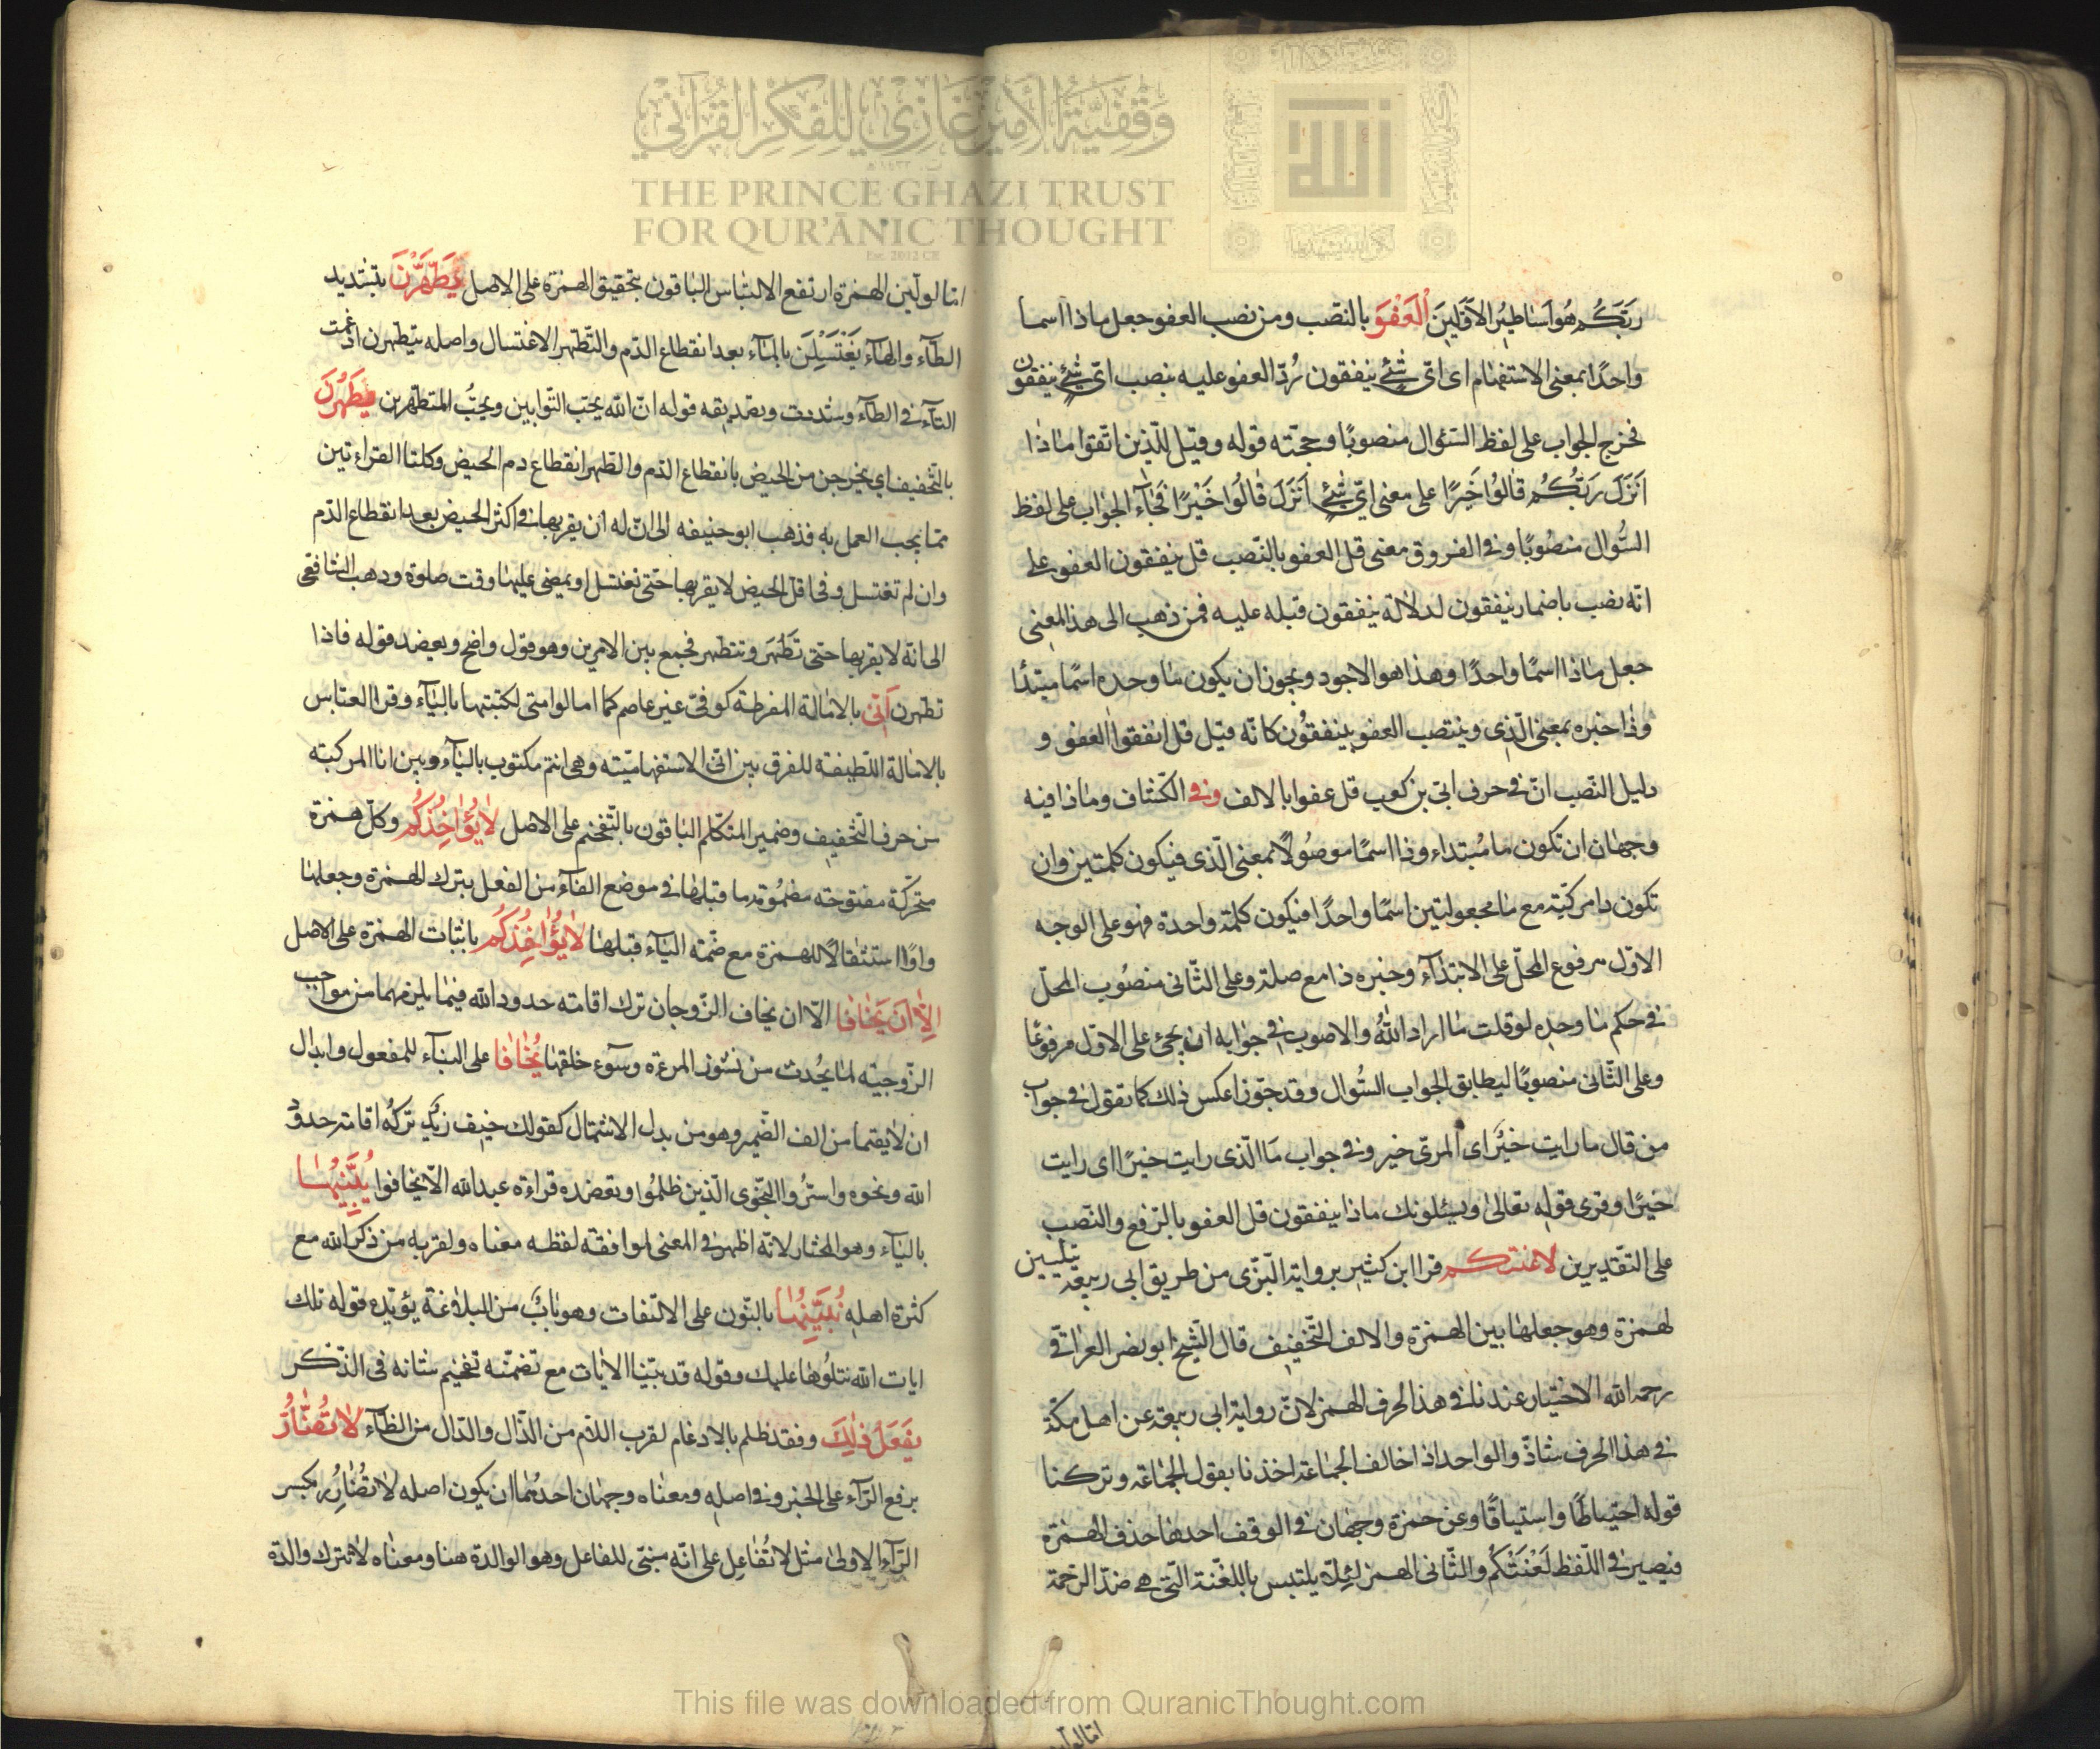 وقفية الأمير غازي للفكر القرآني
THE PRINCE GHAZI TRUST
FOR QUR'ĀNIC THOUGHT
Est. 2012 CE
الله
ربّكم هو اساطير الاوّلين اَلْعَفْوَ بالنّصب ومن نصب العفو جعل ماذا اسما
واحدًا بمعنى الاستفهام اى اىّ شئ ينفقون رُدّ العفو عليه بنصب اىّ شئ ينفقون
فخرج الجواب على لفظ السّئوال منصوبًا وحجّته قوله وقيل للّذين اتّقوا ماذا
اَنَزَلَ رَبّكُم قالُوا خَيرًا على معنى اىّ شئٍ اَنزَلَ قالُوا خَيْرًا فجاء الجواب على لفظ
السُّوال منصُوبًا وفى الفروق معنى قل العفو بالنّصب قل ينفقون العفو على
انّه نصب باضمار ينفقون لدلالة ينفقون قبله عليه فمن ذهب الى هذا المعنى
جعل ماذا اسمًا واحدًا وهذا هو الاجود ويجوز ان يكون ما وحده اسمًا مبتدًا
وذا خبره بمعنى الّذى وينتصب العفو بينفقُون كانّه قيل قل انفقوا العفو و
دليل النّصب انّ فى حرف ابىّ بن كعب قل عفوا بالالف وفى الكشّاف وماذا فيه
وجهان ان تكون ما مُبتداء وذا اسمًا موصُولًا بمعنى الّذى فيكون كلمتين وان
تكون ذا مركّبة مع ما مجعولتين اسمًا واحدًا فيكون كلمة واحدة فهو على الوجه
الاوّل مرفوع المحلّ على الابتدآء وخبره ذا مع صلته وعلى الثّانى منصُوب المحلّ
فى حكم ما وحده لو قلت ما اراد اللهُ والاصوب فى جوابه ان يجئ على الاوّل مرفوعًا
وعلى الثّانى منصوبًا ليطابق الجواب السّوال وقد جوّزا عكس ذلك كما تقول فى جواب
من قال ما رايت خيَر اى المرىّ خير وفى جواب مَا الّذى رايت خيرًا اى رايت
خيرًا وقرى قوله تعالى ويسئلونك ماذا ينفقون قل العفو بالرّفع والنّصب
على التّقديرين لاعنتكم قرا ابن كثير برواية البزّى من طريق ابى ربيعة تبليين
لهمزة وهو جعلها بين الهمزة والالف للتّخفيف قال الشّيخ ابو نصر العراقىّ
رحمه الله الاختيار عندنا فى هذا الحرف الهمز لانّ رواية ابى ربيعة عن اهل مكّة
فى هذا الحرف شاذّ والواحد اذا خالف الجماعة اخذنا بقول الجماعة وتركنا
قوله احتياطًا واستيثاقًا وعن حمزة وجهان فى الوقف احدهما حذف الهمزة
فيصير فى اللّفظ لَعْنَتَكُم والثّانى الهمز لئلّا يلتبس باللعْنة الّتى هى ضدّ الرّحمة
امّا لو ليّن
امّا لو ليّن الهمزة ارتفع الالتباس الباقون بتحقيق الهمزة على الاصل يَطَّهَّرْنَ بتشديد
الطّآء والهآء يَغْتَسِلْنَ بالمآء بعد انقطاع الدّم والتّطهّر الاغتسال واصله يتطهّرن ادغمت
التآء فى الطآء وشدّدت وتصديقه قوله انّ الله يحبّ التّوّابين ويحبُّ المتطهّرين يَطْهُرْنَ
بالتّخفيف اي يخرجن من الحيض بانقطاع الدّم والطّهر انقطاع دم الحيض وكلتا القراءتين
ممّا يجب العمل به فذهب ابو حنيفه الى انّ له ان يقربها فى اكثر الحيض بعد انقطاع الدّم
وان لم تغتسل وفى اقلّ الحيض لا يقربها حتّى تغتسل او يمضى عليها وقت صلوة وذهب الشّافعى
الى انّه لا يقربها حتّى تَطْهُرَ وتتطهر فجمع بين الامرين وهو قول واضح ويعضده قوله فاذا
تطهّرن اَنّى بالامالة المفرطة كوفىّ غير عاصم كما امالوا متى لكتبتها بالياء وقرا العبّاس
بالامالة اللّطيفة للفرق بين انّى الاستفهاميّته وهى اسم مكتوب بالياء وبين انّا المركبته
من حرف التّخفيف وضمير المتكلّم الباقون بالتّفخيم على الاصل لا يُؤاخِذُكُم وكلّ همزة
متحرّكة مفتوحته مضمُومة ما قبلها فى موضع الفآء من الفعل بترك الهمزة وجعلها
واوًا استثقالًا للهمزة مع ضمّه الياء قبلها لا يُؤاخِذُكُم باثبات الهمزة على الاصل
اِلّا اَن يَخافا الّا ان يخاف الزّوجان ترك اقامته حدود الله فيما يلزمهما من مواجب
الزّوجيّه لما يُحدث من نشوز المرءة وسوء خلقها يُخافا على البناء للمفعول وابدال
ان لا يقيما من الف الضّمير وهو من بدل الاشتمال كقولك خيف زيد تركه اقامة حدود
الله ونحوه واسرُّوا النّجوى الّذين ظلمُوا وبعضده قراءة عبد الله الّا يخافوا يُبَيِّنُها
بالياء وهو المختار لانّه اظهر فى المعنى لموافقة لفظه معناه ولقربه من ذكر الله مع
كثرة اهله نُبَيِّنُها بالنّون على الالتفات وهو بابٌ من البلاغة يؤيّده قوله تلك
ايات الله نتلُوها عليك وقوله قد بيّنا الايات مع تضمّنه تفخيم شانه فى الذّكر
يَفعَلْ ذٰلِكَ وفقد ظلم بالادغام لقرب اللّام من الذّال والدّال من الظّآء لا تُضآرُّ
برفع الرّآء على الخبر وفى اصله ومعناه وجهان احدهما ان يكون اصله لا تُضارِرُ بكسر
الرّآء الاولى مثل لا تُفاعِل على انّه مبنىّ للفاعل وهو الوالدة هنا ومعناه لا تترك والدة
This file was downloaded from QuranicThought.com